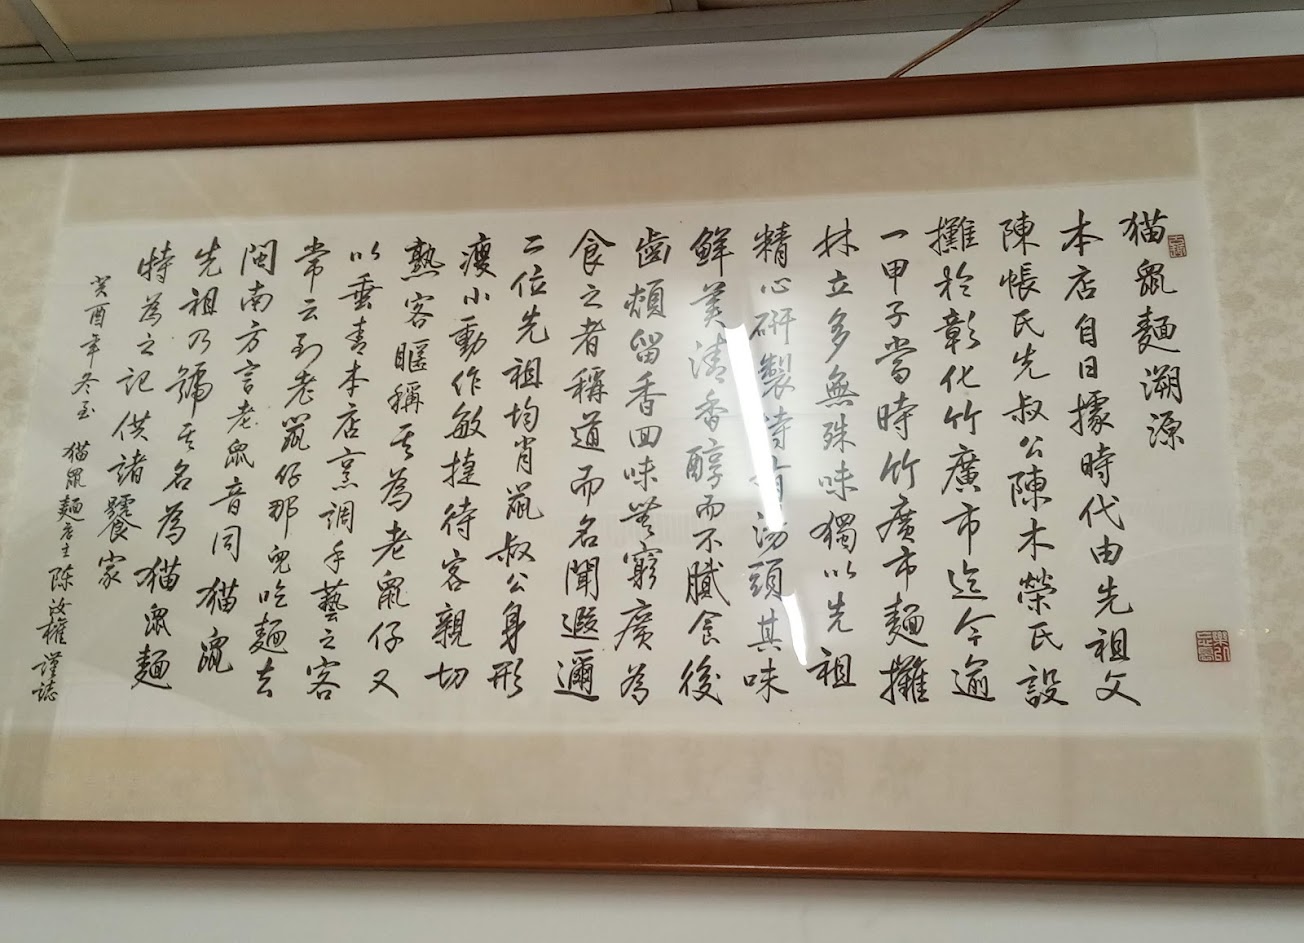 猫鼠麵溯源
本店自日據時代由先祖父
陳帳氏先叔公陳木榮氏設
攤於彰化竹廣市迄今逾
一甲子當時竹廣市麵攤
林立多無殊味獨以先祖
精心研製特有湯頭其味
鮮美清香醇而不膩食後
齒頰留香回味無窮廣為
食之者稱道而名聞遐邇
二位先祖均肖鼠叔公身形
瘦小動作敏捷待客親切
熟客暱稱其為老鼠仔又
以垂青本店烹調手藝之客
常云到老鼠仔那兒吃麵去
閩南方言老鼠音同猫鼠
先祖乃號其名為猫鼠麵
特為之記供諸饕家
癸酉年冬至 猫鼠麵店主 陈汝權 謹誌